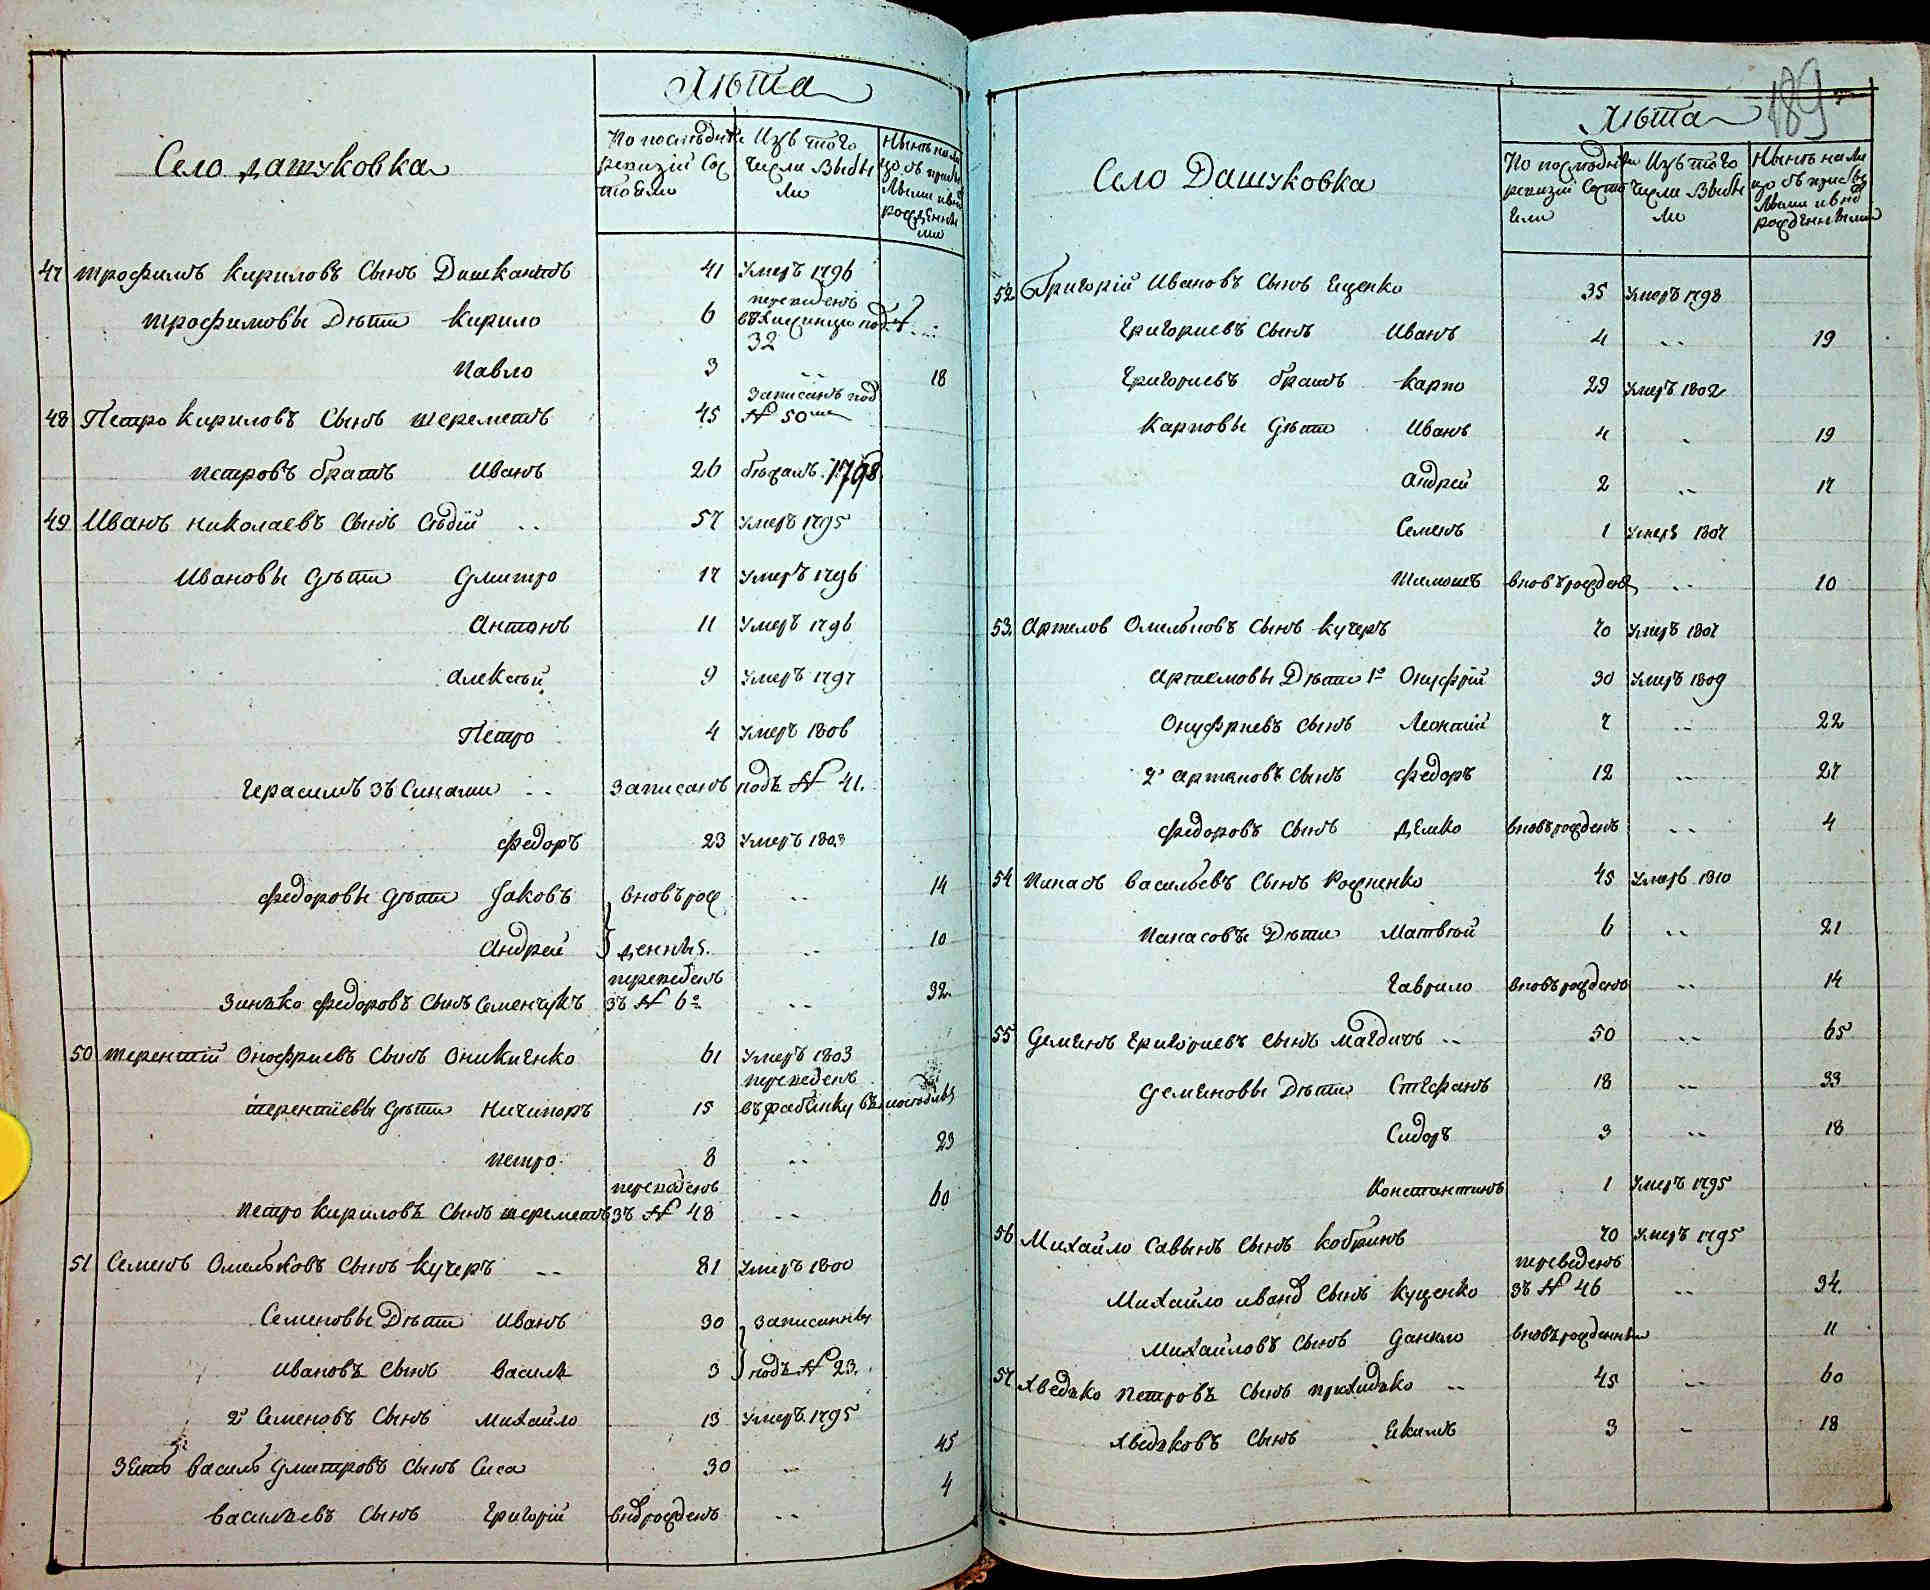 Село дашуковка
Лѣта
По послѣдней ревизіи Состояли
Изъ того числа Выбыли
Нынѣ на лицо
47 трофимъ кириловъ Сынъ 41 Умеръ 1796
трофимовы Дѣти кирило 6 переведенъ 32
Павло 3 18
48 Петро кириловъ Сынъ шереметъ 45 Записанъ под № 50мъ
петровъ братъ Иванъ 26 бѣжалъ 1798
49 Иванъ николаевъ Сынъ Сѣдій 57 Умеръ 1795
Ивановы Дѣти Дмитро 17 Умеръ 1796
Антонъ 11 Умеръ 1796
Алексѣй 9 Умеръ 1797
Петро 4 Умеръ 1806
Герасимъ зъ Синами Записанъ подъ № 41.
Федоръ 23 Умеръ 1803
Федоровы Дѣти Іаковъ вновърож 14
Андрей денныя. 10
Зинько Федоровъ Сынъ Семенчукъ переведенъ зъ № 6го 32
50 терентій Онофриевъ Сынъ Оникиенко 61 Умеръ 1803
терентіевы Дѣти Ничипоръ 15 переведенъ
петро 8 23
петро кириловъ Сынъ шереметъ переведенъ зъ № 48 60
51 Семенъ Омельковъ Сынъ кучеръ 81 Умеръ 1800
Семеновы Дѣти Иванъ 30 записанны
Ивановъ Сынъ василь 3 подъ № 23.
2й Семеновъ Сынъ михайло 13 Умеръ 1795
Зять василь Дмитровъ Сынъ Сиса 30 45
васильевъ Сынъ Григорій 4
189
Село Дашуковка
Лѣта
По послѣдней ревизіи Состояли
Изъ того числа Выбыли
Нынѣ на лицо
52 Григорій Ивановъ Сынъ Ещенко 35 Умеръ 1798
Григориевъ Сынъ Иванъ 4 19
Григориевъ братъ карпо 29 Умеръ 1802
Карповы Дѣти Иванъ 4 19
Андрей 2 17
Семенъ 1 Умеръ 1807
Тимошъ вновърожденъ 10
53 Артемъ Омельковъ Сынъ кучеръ 70 Умеръ 1807
Артемовы Дѣти 1й Онуфрій 30 Умеръ 1809
Онуфриевъ Сынъ Леонтій 7 22
2й Артемовъ Сынъ Федоръ 12 27
Федоровъ Сынъ Демко вновърожденъ 4
54 Панасъ васильевъ Сынъ 45 Умеръ 1810
Панасовы Дѣти Матвѣй 6 21
Гаврило вновърожденъ 14
55 Демянъ Григориевъ Сынъ магдичъ 50 65
Демяновы Дѣти Стефанъ 18 33
Сидоръ 3 18
Константинъ 1 Умеръ 1795
56 Михайло Савынъ Сынъ кобринъ 70 Умеръ 1795
Михайло иванъ Сынъ кущенко переведенъ зъ № 46 34.
Михайловъ Сынъ Данило 11
57 Хведько Петровъ Сынъ прихидько 45 60
Хведьковъ Сынъ Екимъ 3 18